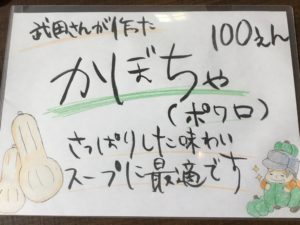 武田さんが作った
100えん
かぼちゃ
(ポワロ)
さっぱりした味わい
スープに最適です